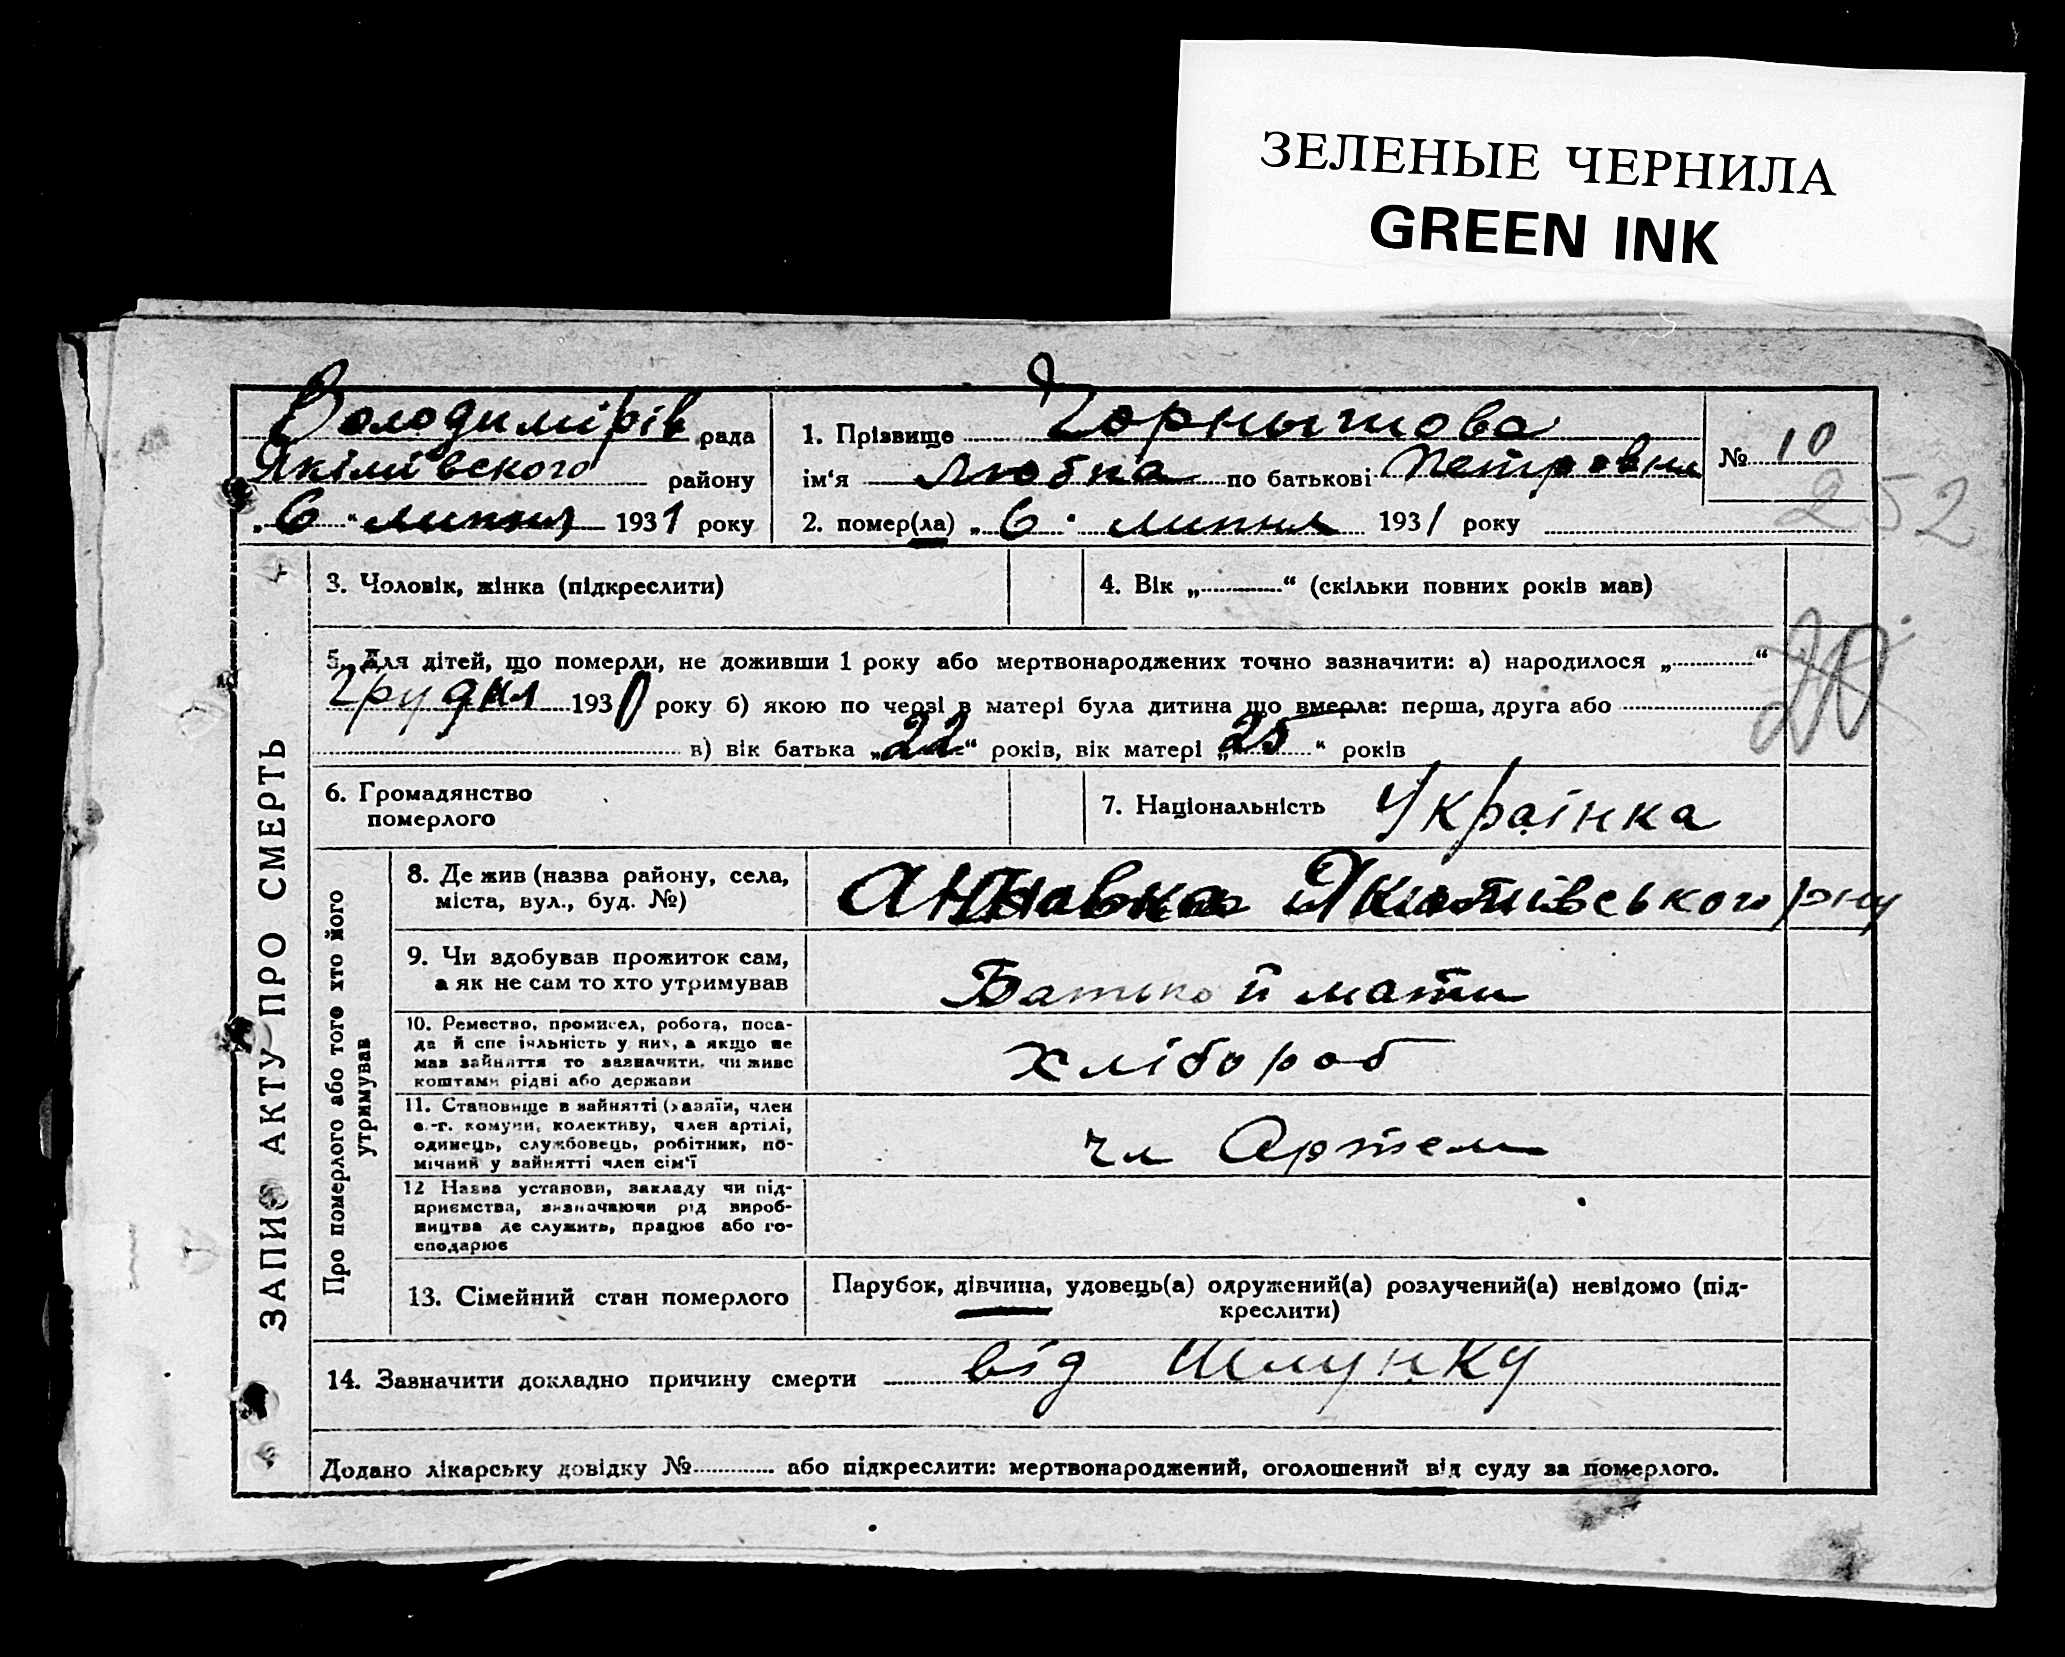 ЗЕЛЕНЫЕ ЧЕРНИЛА
GREEN INK
Володимирів рада
Якімівского району
„6“ липня 1931 року
1. Прізвище Чорнышова
ім'я Любка по батькові Петровна
2. помер(ла) „6“ липня 1931 року
№ 10
252
ЗАПИС АКТУ ПРО СМЕРТЬ
3. Чоловік, жінка (підкреслити)
4. Вік „ “ (скільки повних років мав)
5. Для дітей, що померли, не доживши 1 року або мертвонароджених точно зазначити: а) народилося „ “
грудня 1930 року б) якою по черзі в матері була дитина що вмерла: перша, друга або
в) вік батька „22“ років, вік матері „25“ років
20
6. Громадянство
померлого
7. Національність Українка
Про померлого або того хто його
утримував
8. Де жив (назва району, села,
міста, вул., буд. №)
Якимівського рну
9. Чи здобував прожиток сам,
а як не сам то хто утримував
Батько й мати
10. Ремество, промисел, робота, поса-
да й спеціяльність у них, а якщо не
мав зайняття то зазначити, чи живе
коштами рідні або держави
хлібороб
11. Становище в зайнятті (хазяїн, член
с.-г. комуни, колективу, член артілі,
одинець, службовець, робітник, по-
мічний у зайнятті член сім'ї
чл Артели
12 Назва установи, закладу чи під-
приємства, визначаючи рід вироб-
ництва де служить, працює або го-
сподарює
13. Сімейний стан померлого
Парубок, дівчина, удовець(а) одружений(а) розлучений(а) невідомо (під-
креслити)
14. Зазначити докладно причину смерти від Шлунку
Додано лікарську довідку № або підкреслити: мертвонароджений, оголошений від суду за померлого.